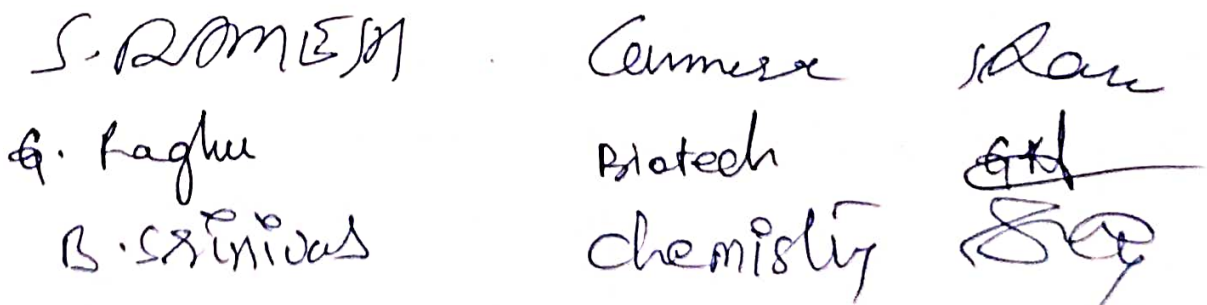 S. RAMESH Commerce
G. Raghu Biotech
B. Srinivas Chemistry